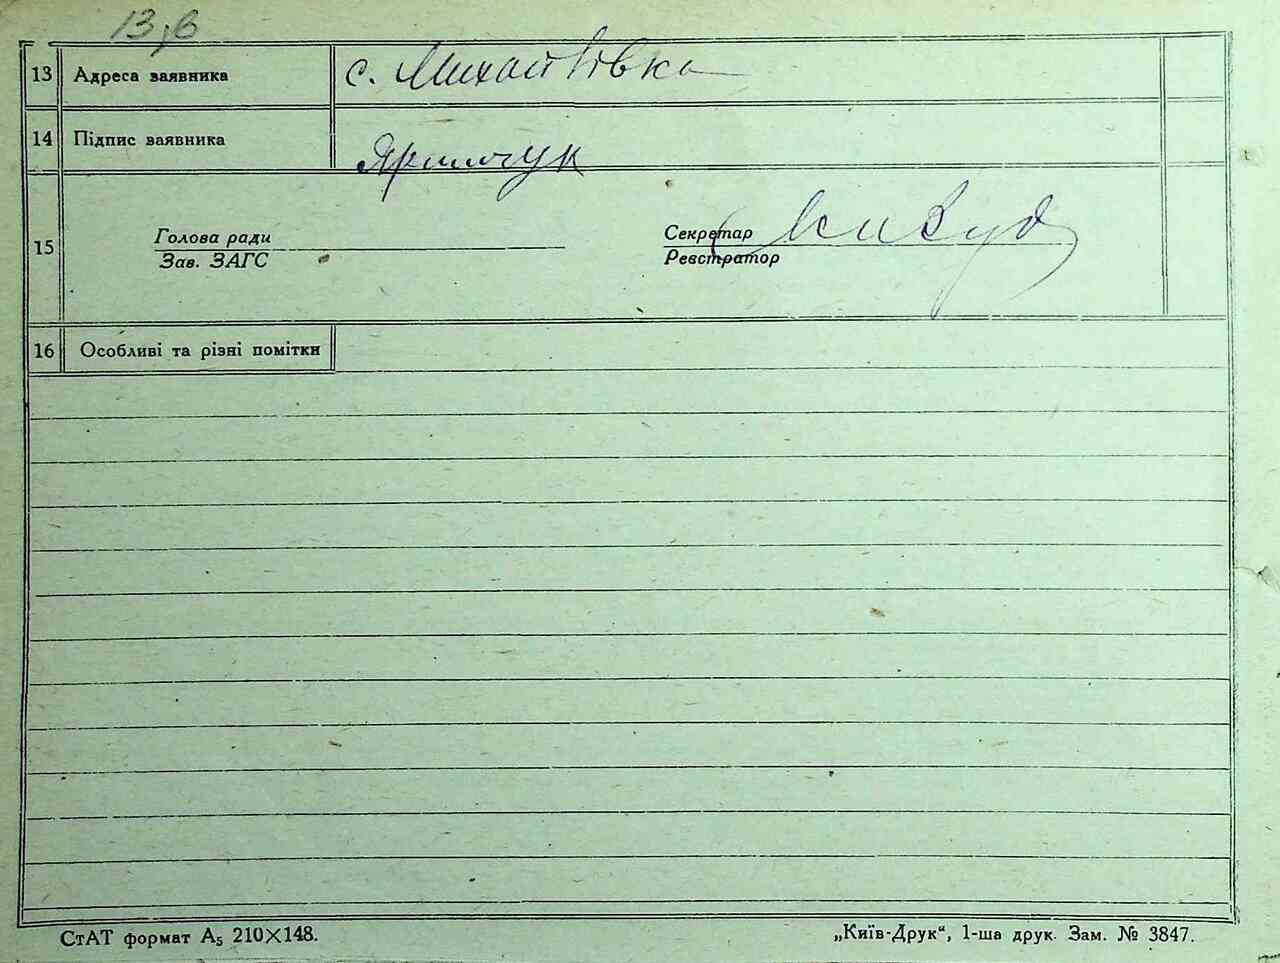 13зв
13 Адреса заявника с. Михайлівка
14 Підпис заявника Яримчук
15
Голова ради Секретар
Зав. ЗАГС Реєстратор
16 Особливі та різні помітки
СтАТ формат А₅ 210×148. „Київ-Друк“, 1-ша друк. Зам. № 3847.